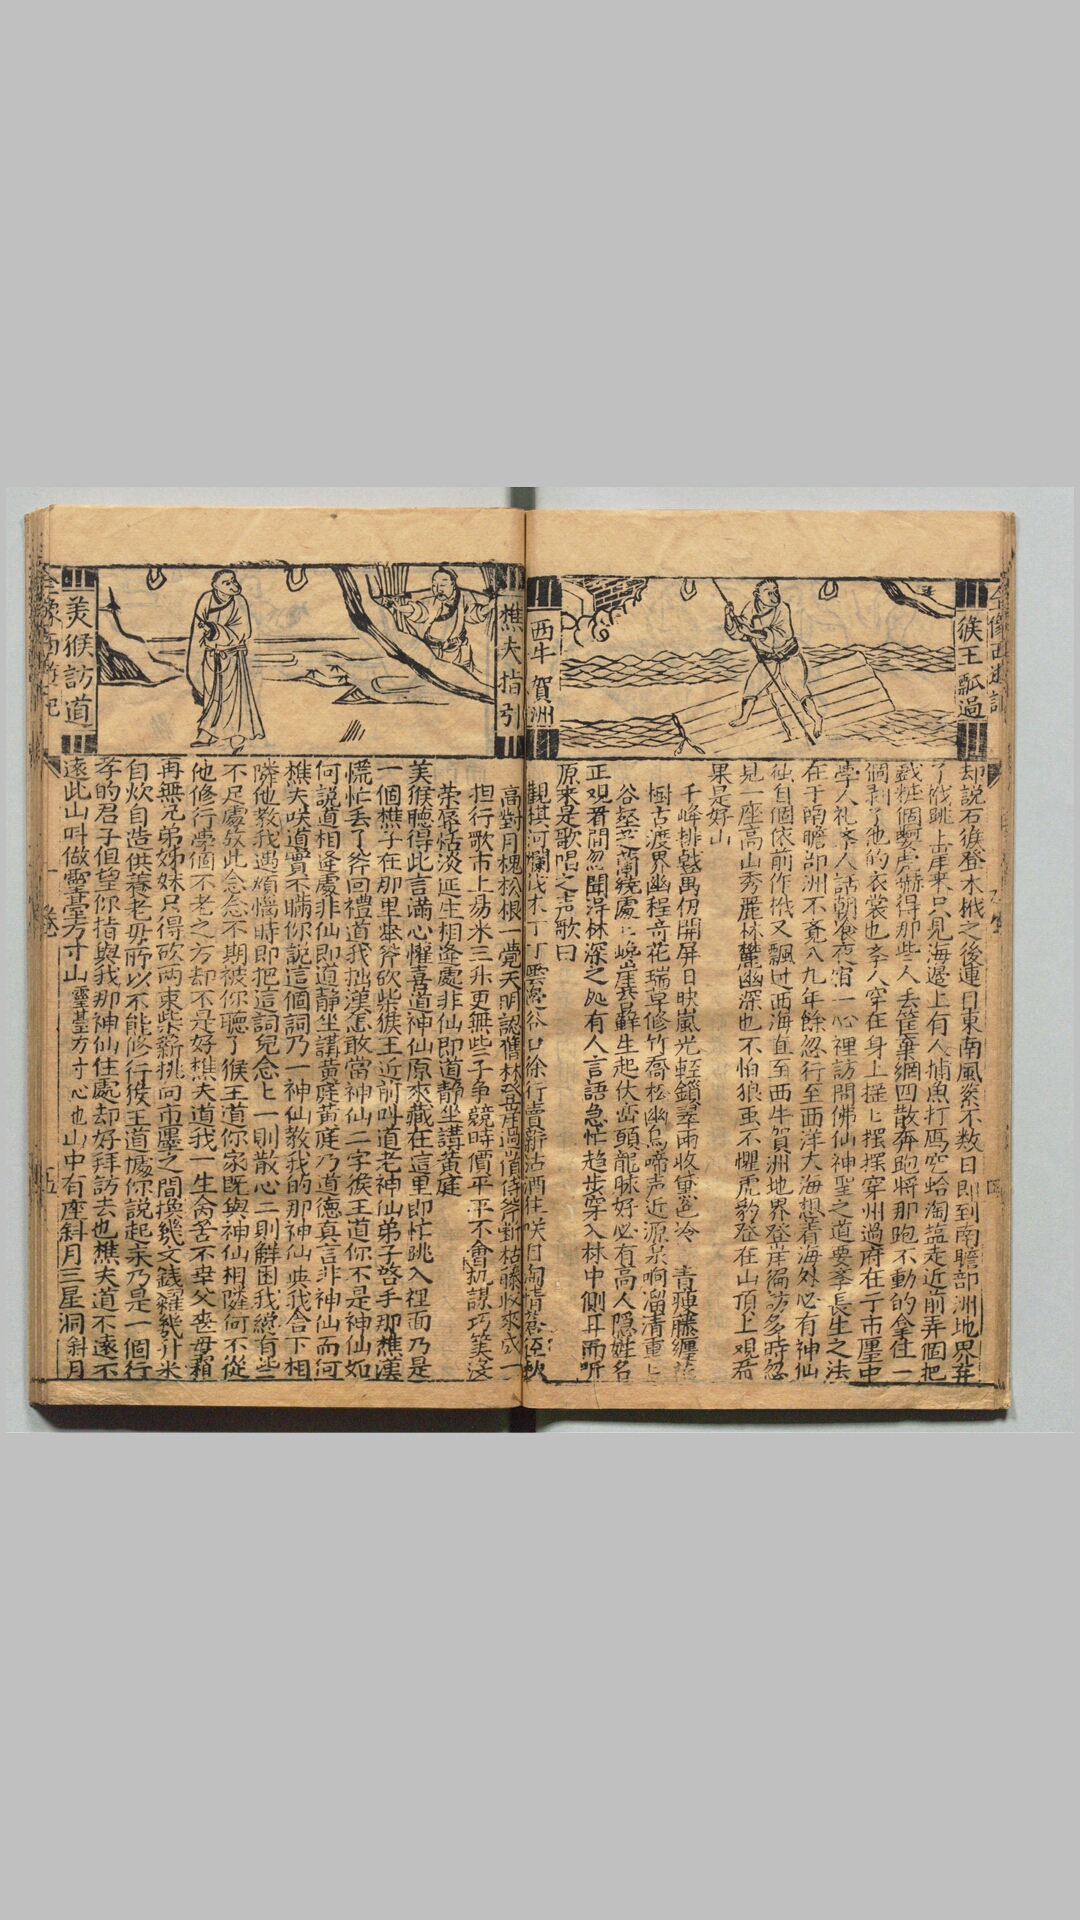 全像西遊記
猴王瓢過
西牛賀洲
却說石猴登木栰之後連日東南風緊不数日即到南瞻部洲地界弃
了栰跳上岸来只見海邊上有人捕魚打鴈穵蛤淘盐走近前弄個把
戲粧個䫲虎赫得那些人丢筐棄網四散奔跑將那跑不動的拿住一
個剥了他的衣裳也孝人穿在身上摇上摆摆穿州過府在于市㕓中
孝人礼孝人話朝飡夜宿一心裡訪問佛仙神聖之道要孝長生之法
在于南瞻部洲不竟八九年餘忽行至西洋大海想着海外必有神仙
独自個依前作栰又飄过西海直至西牛賀洲地界登岸徧訪多時忽
見一座高山秀麗林麓幽深也不怕狼虫不懼虎豹登在山頂上观看
果是好山
千峰排戟萬仞開屏日映嵐光輕鎖翠雨收黛色冷 青痩藤纒
樹古渡界幽程奇花瑞草修竹喬松幽鳥啼声近源泉响溜清重上
谷壑芝蘭繞處上巉崖苔蘚生起伏峦頭龍脉好必有高人隐姓名
正观看間忽聞淂林深之処有人言語急忙趋步穿入林中側耳而听
原来是歌唱之声歌曰
觀棋河爛伐木丁丁雲邉谷口徐行賣薪沽酒狂笑自陶情蒼逕秋
樵夫指引
美猴訪道
高對月槐松根一覺天明認舊林登崖過嶺侍斧斷枯藤收来成一
担行歌市上昜米三升更無些子争競時價平平不會机謀巧筭没
荣辱恬淡延生相逢處非仙即道静坐講黄庭
美猴聴得此言滿心懽喜道神仙原來藏在這里即忙跳入裡面乃是
一個樵子在那里举斧砍柴猴王近前叫道老神仙弟子啓手那樵漢
慌忙丢了斧回禮道我拙漢怎敢當神仙二字猴王道你不是神仙如
何說道相逢處非仙即道静坐講黄庭黄庭乃道德真言非神仙而何
樵夫咲道實不瞞你說這個詞乃一神仙教我的那神仙與我舍下相
隣他教我遇煩惱時即把這詞兒念上一則散心二則觧困我纔有些
不足處攷此念念不期被你聽了猴王道你家既與神仙相隣何不從
他修行學個不老之方却不是好樵夫道我一生命苦不幸父喪母孀
再無兄弟姊妹只得砍兩束柴薪挑向市㕓之間換幾文錢糴幾升米
自炊自造供養老母所以不能修行猴王道據你說起來乃是一個行
孝的君子但望你指與我那神仙住處却好拜訪去也樵夫道不遠不
遠此山叫做靈臺方寸山靈臺方寸心也山中有座斜月三星洞斜月
全像西遊記
一卷
五